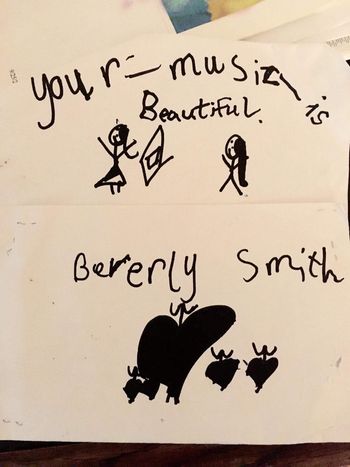 your- musiz is
Beautiful.
Berenly Smith